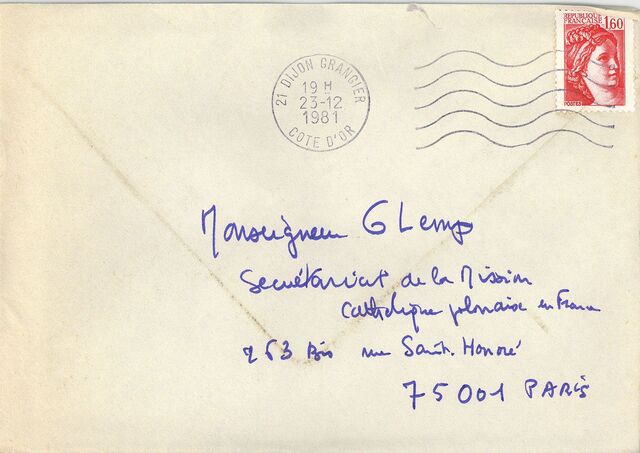 REPUBLIQUE
FRANCAISE
1,60
POSTES
21 DIJON GRANGIER
19 H
23-12
1981
COTE D'OR
Monseigneur G Lemp
Secrétariat de la Mission
Catholique polonaise en France
263 Bis rue Saint. Honoré
75001 PARIS